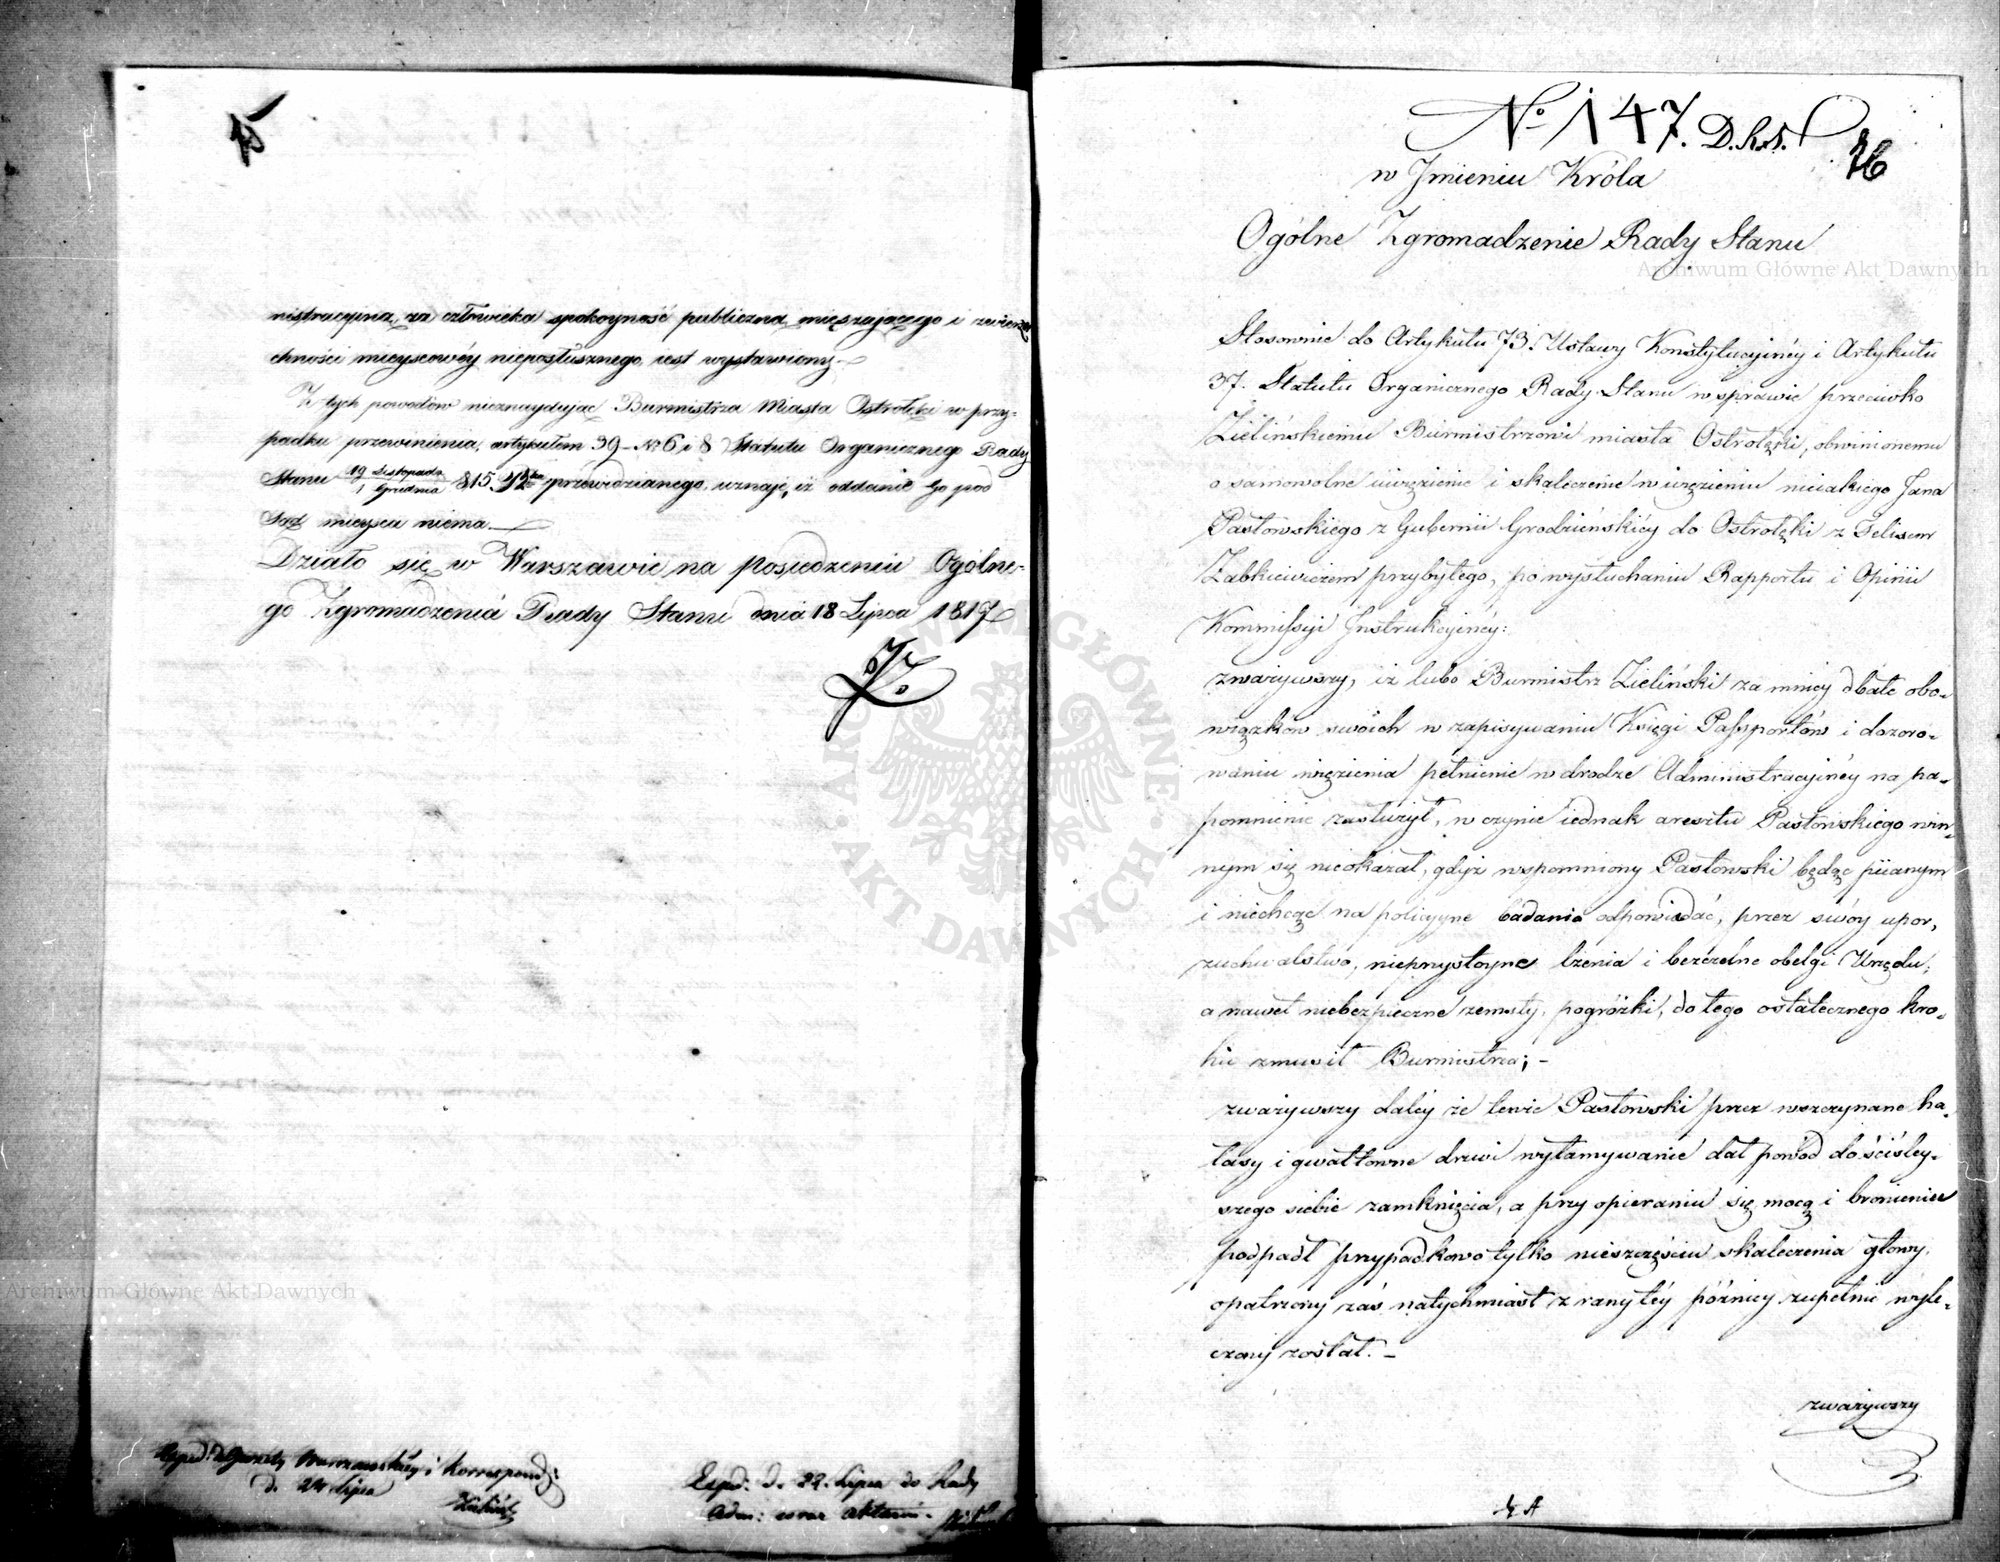 15
nistracyiną za człowieka spokoyność publiczną mięszaiącego i zwierz-
chności mieyscowéy nieposłusznego iest wystawiony.—
Z tych powodów nieznayduiąc Burmistrza Miasta Ostrołęki w przy-
padku przewinienia, artykułem 39 – No 6 i 8 Statutu Organicznego Rady
Stanu 19 Listopada / 1 Grudnia 815. przewidzianego, uznaie, iż oddanie Go pod
Sąd mieysca niema.—
Działo się w Warszawie na posiedzeniu Ogólne-
go Zgromadzenia Rady Stanu dnia 18 Lipca 1817
Exped: d. 22. Lipca do Rady
Adm: wraz aktami.
d. 24 Lipca
No 147. D.R.S.
16
w Jmieniu Króla
Ogólne Zgromadzenie Rady Stanu
Stosownie do Artykułu 73. Ustawy Konstytucyinéy i Artykułu
37. Statutu Organicznego Rady Stanu w sprawie przeciwko
Zielińskiemu Burmistrzowi miasta Ostrołęki, obwinionemu
o samowolne uwięzienie i skaleczenie w więzieniu nieiakiego Jana
Pastowskiego z Gubernii Grodzieńskiéy do Ostrołęki z Felixem
Zabkiewiczem przybyłego, po wysłuchaniu Rapportu i Opinii
Kommissyi Jnstrukcyinéy:
zważywszy, iż lubo Burmistrz Zieliński za mniéy dbałe obo-
wiązków swoich w zapisywaniu Księgi Passportów i dozoro-
waniu więzienia pełnienie w drodze Administracyinéy na na-
pomnienie zasłużył, w czynie iednak aresztu Pastowskiego win-
nym się nieokazał, gdyż wspomniony Pastowski będąc piianym
i niechcąc na policyyne badania odpowiadać, przez swóy upor,
zuchwalstwo, nieprzystoyne lżenia i bezczelne obelgi Urzędu,
a nawet niebezpieczne zemsty, pogróżki, do tego ostatecznego kro-
ku zmusił Burmistrza; –
zważywszy daléy że tenże Pastowski przez wszczynane ha-
łasy i gwałtowne drzwi wyłamywanie dał powód do ściśley-
szego siebie zamknięcia, a przy opieraniu się mocą i bronieniu
podpadł przypadkowo tylko nieszczęściu skaleczenia głowy,
opatrzony zaś natychmiast z rany téy późniéy zupełnie wyle-
czony został. –
zważywszy
Archiwum Główne Akt Dawnych
Archiwum Główne Akt Dawnych
ARCHIWUM GŁÓWNE • AKT DAWNYCH •